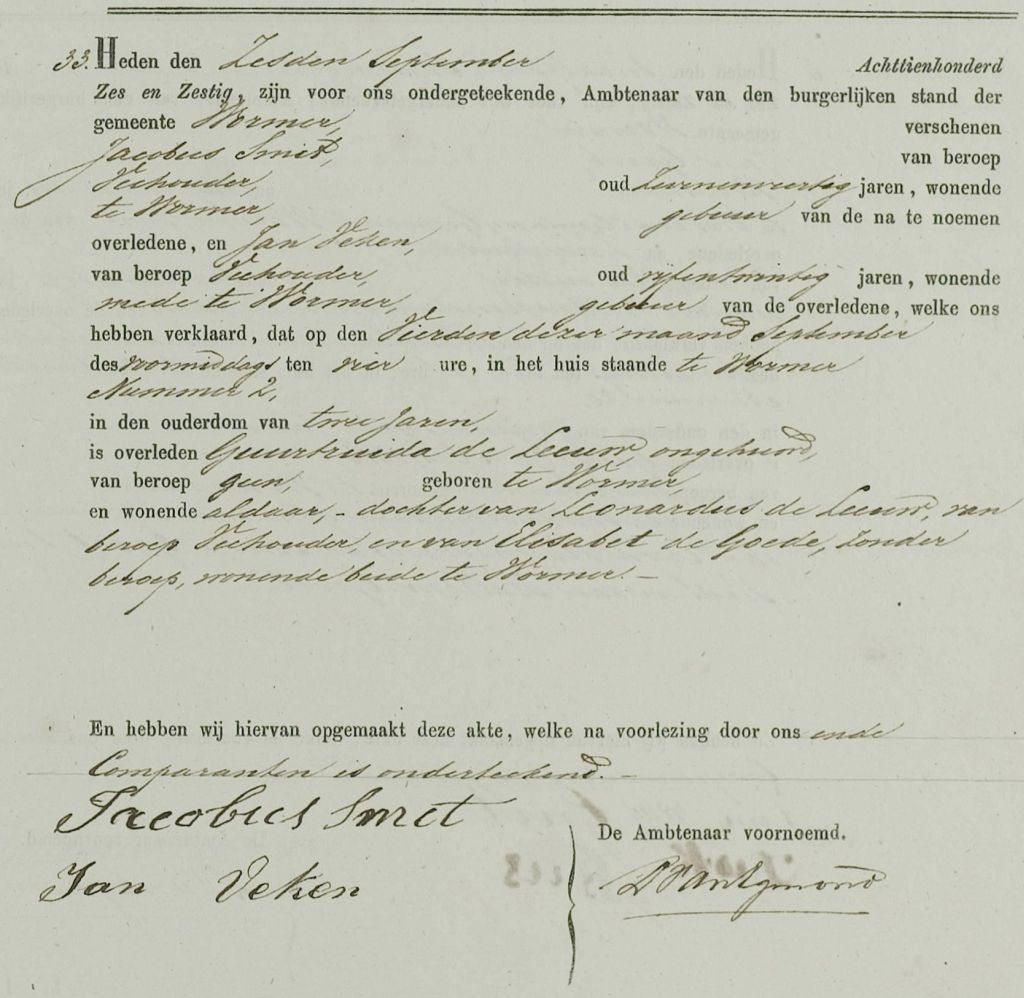 33. Heden den Zesden September Achttienhonderd
Zes en Zestig, zijn voor ons ondergeteekende, Ambtenaar van den burgerlijken stand der
gemeente Wormer, verschenen
Jacobus Smit, van beroep
Veehouder, oud Zevenenveertig jaren, wonende
te Wormer, gebuur van de na te noemen
overledene, en Jan Veken,
van beroep Veehouder, oud vyfentwintig jaren, wonende
mede te Wormer, gebuur van de overledene, welke ons
hebben verklaard, dat op den Vierden dezer maand September
des voormiddags ten vier ure, in het huis staande te Wormer
Nummer 2,
in den ouderdom van twee Jaren,
is overleden Guurtruida de Leeuw, ongehuwd,
van beroep geen, geboren te Wormer,
en wonende aldaar, - dochter van Leonardus de Leeuw, van
beroep Veehouder, en van Elisabet de Goede, zonder
beroep, wonende beide te Wormer. -
En hebben wij hiervan opgemaakt deze akte, welke na voorlezing door ons ende
Comparanten is onderteekend. -
Jacobus Smit
De Ambtenaar voornoemd.
Jan Veken